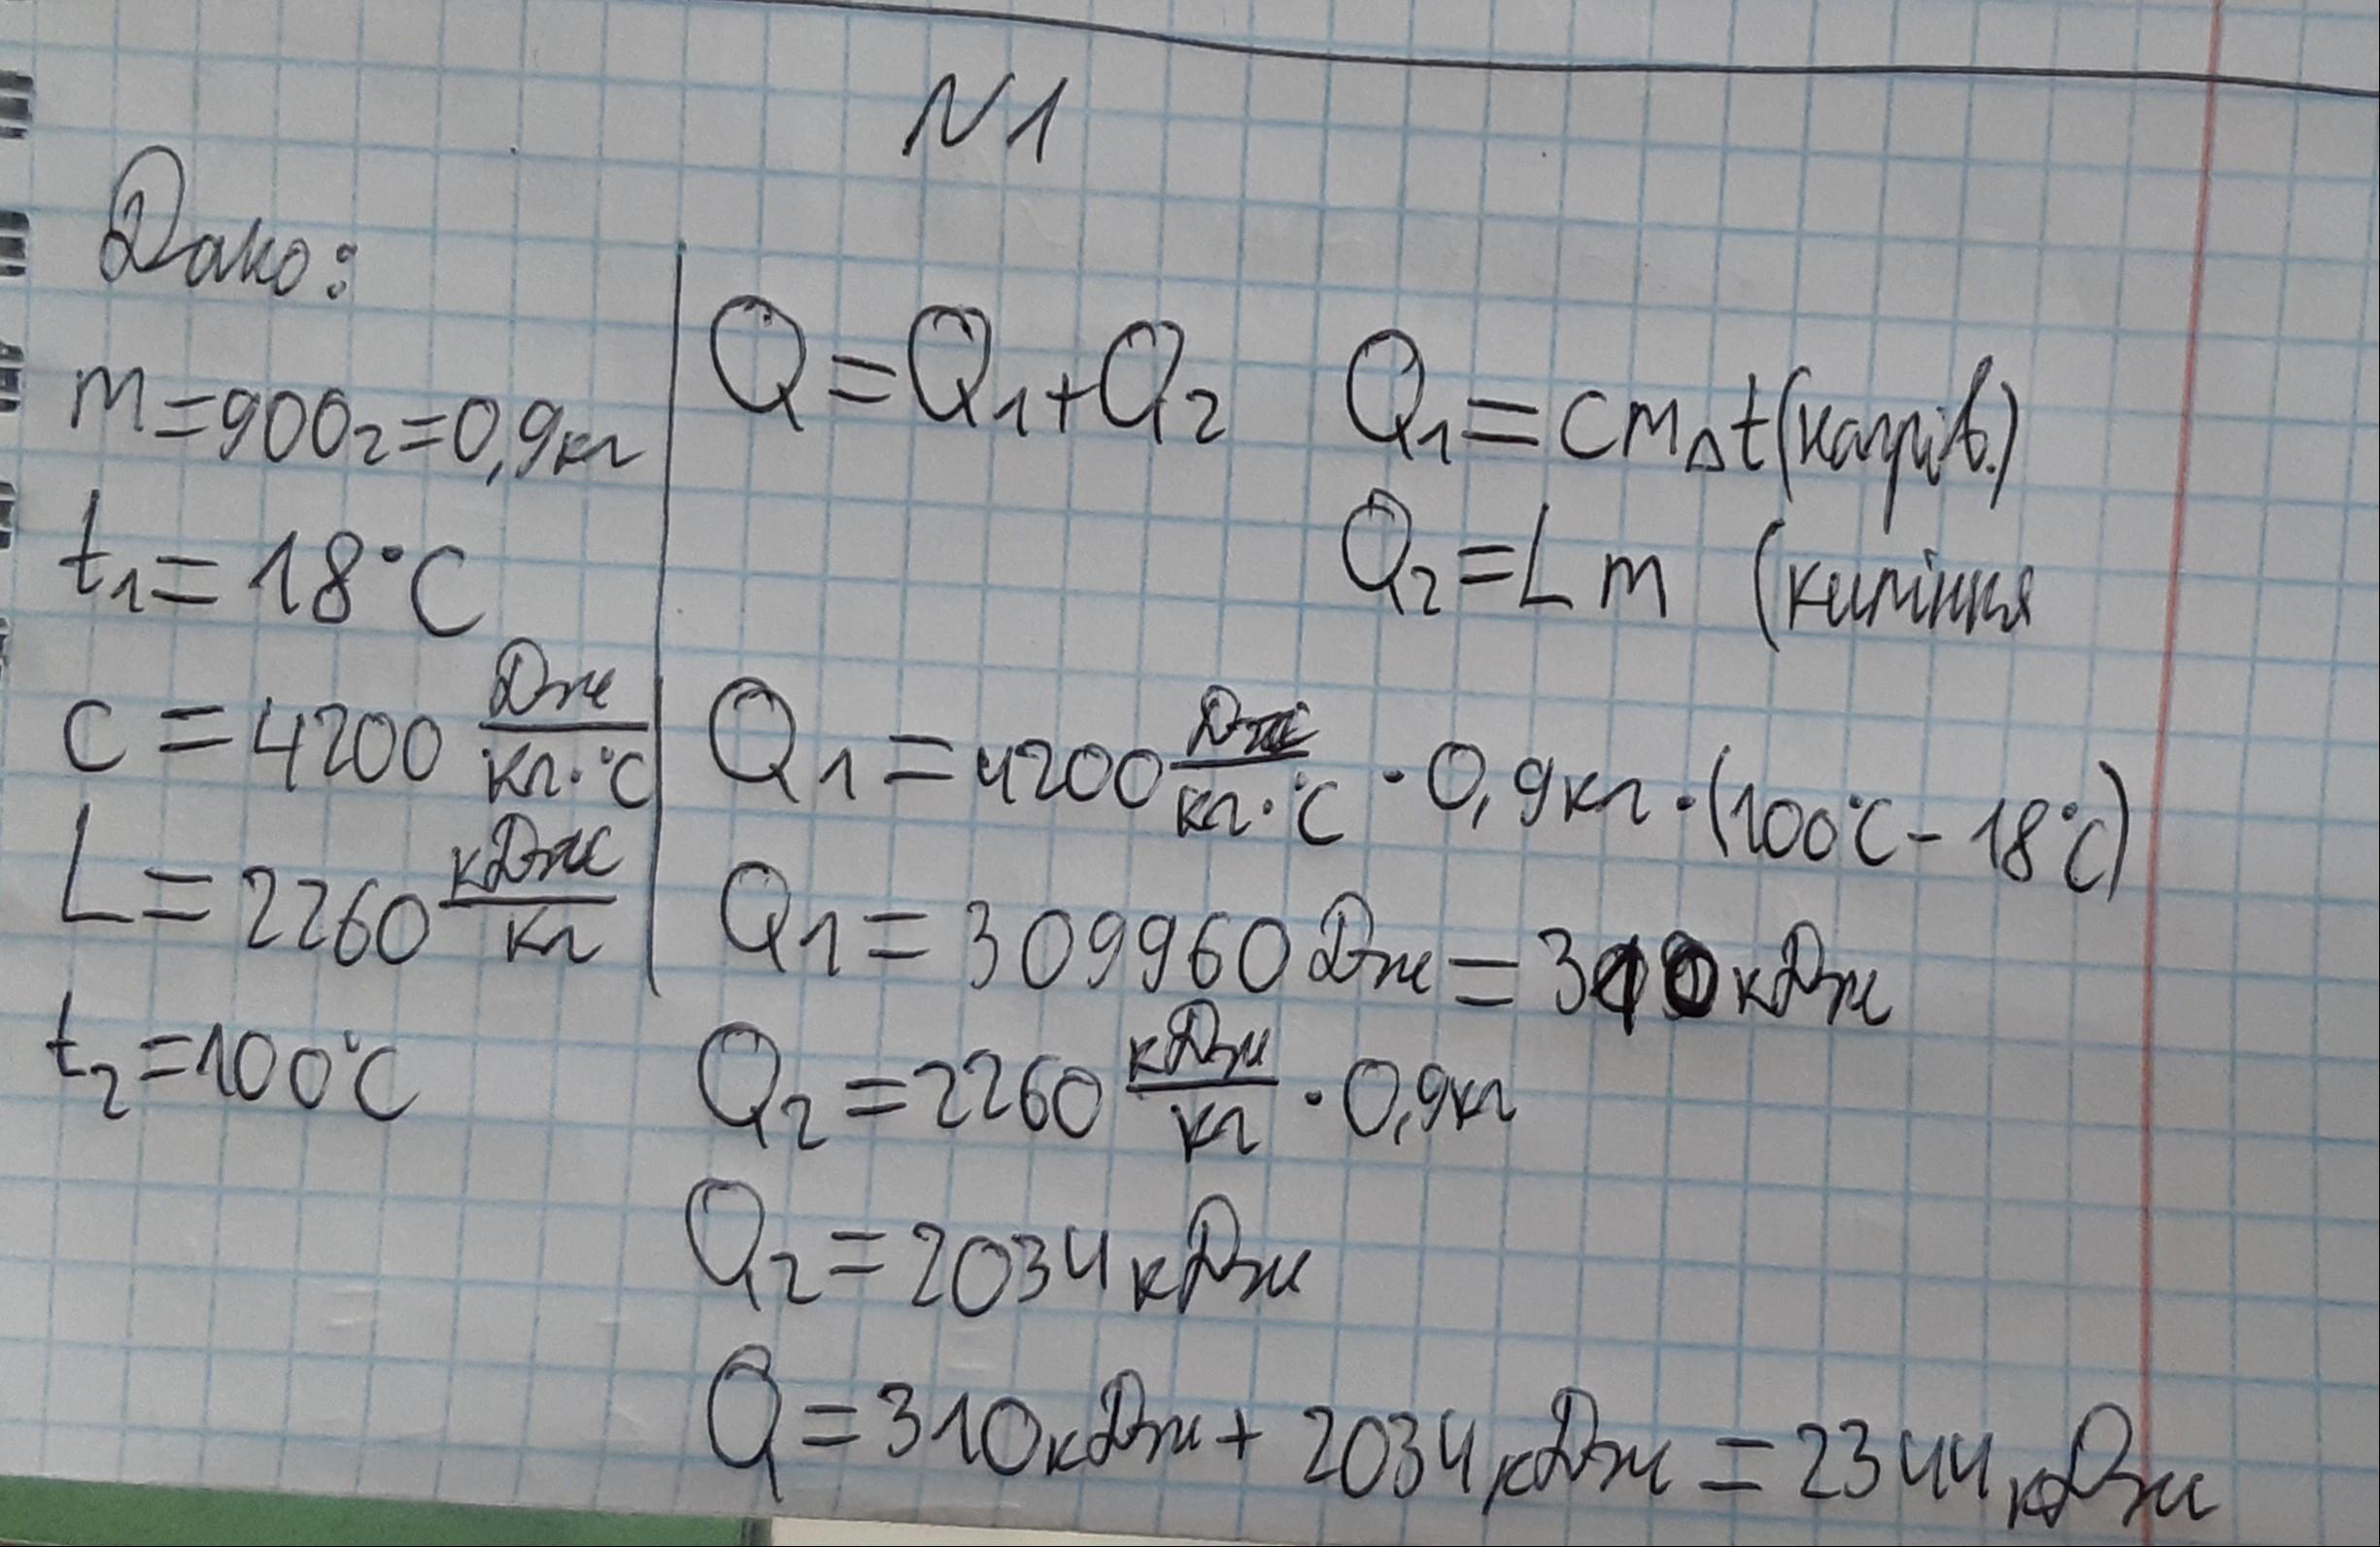 N1
Дано:
m=900г=0,9кг
t₁=18°C
c=4200 Дж/кг·°C
L=2260 кДж/кг
t₂=100°C
Q=Q₁+Q₂ Q₁=cm△t(нагрів.)
Q₂=Lm (кипіння
Q₁=4200 Дж/кг·°C · 0,9кг·(100°C-18°C)
Q₁=309960Дж=310кДж
Q₂=2260 кДж/кг · 0,9кг
Q₂=2034кДж
Q=310кДж+2034кДж=2344кДж